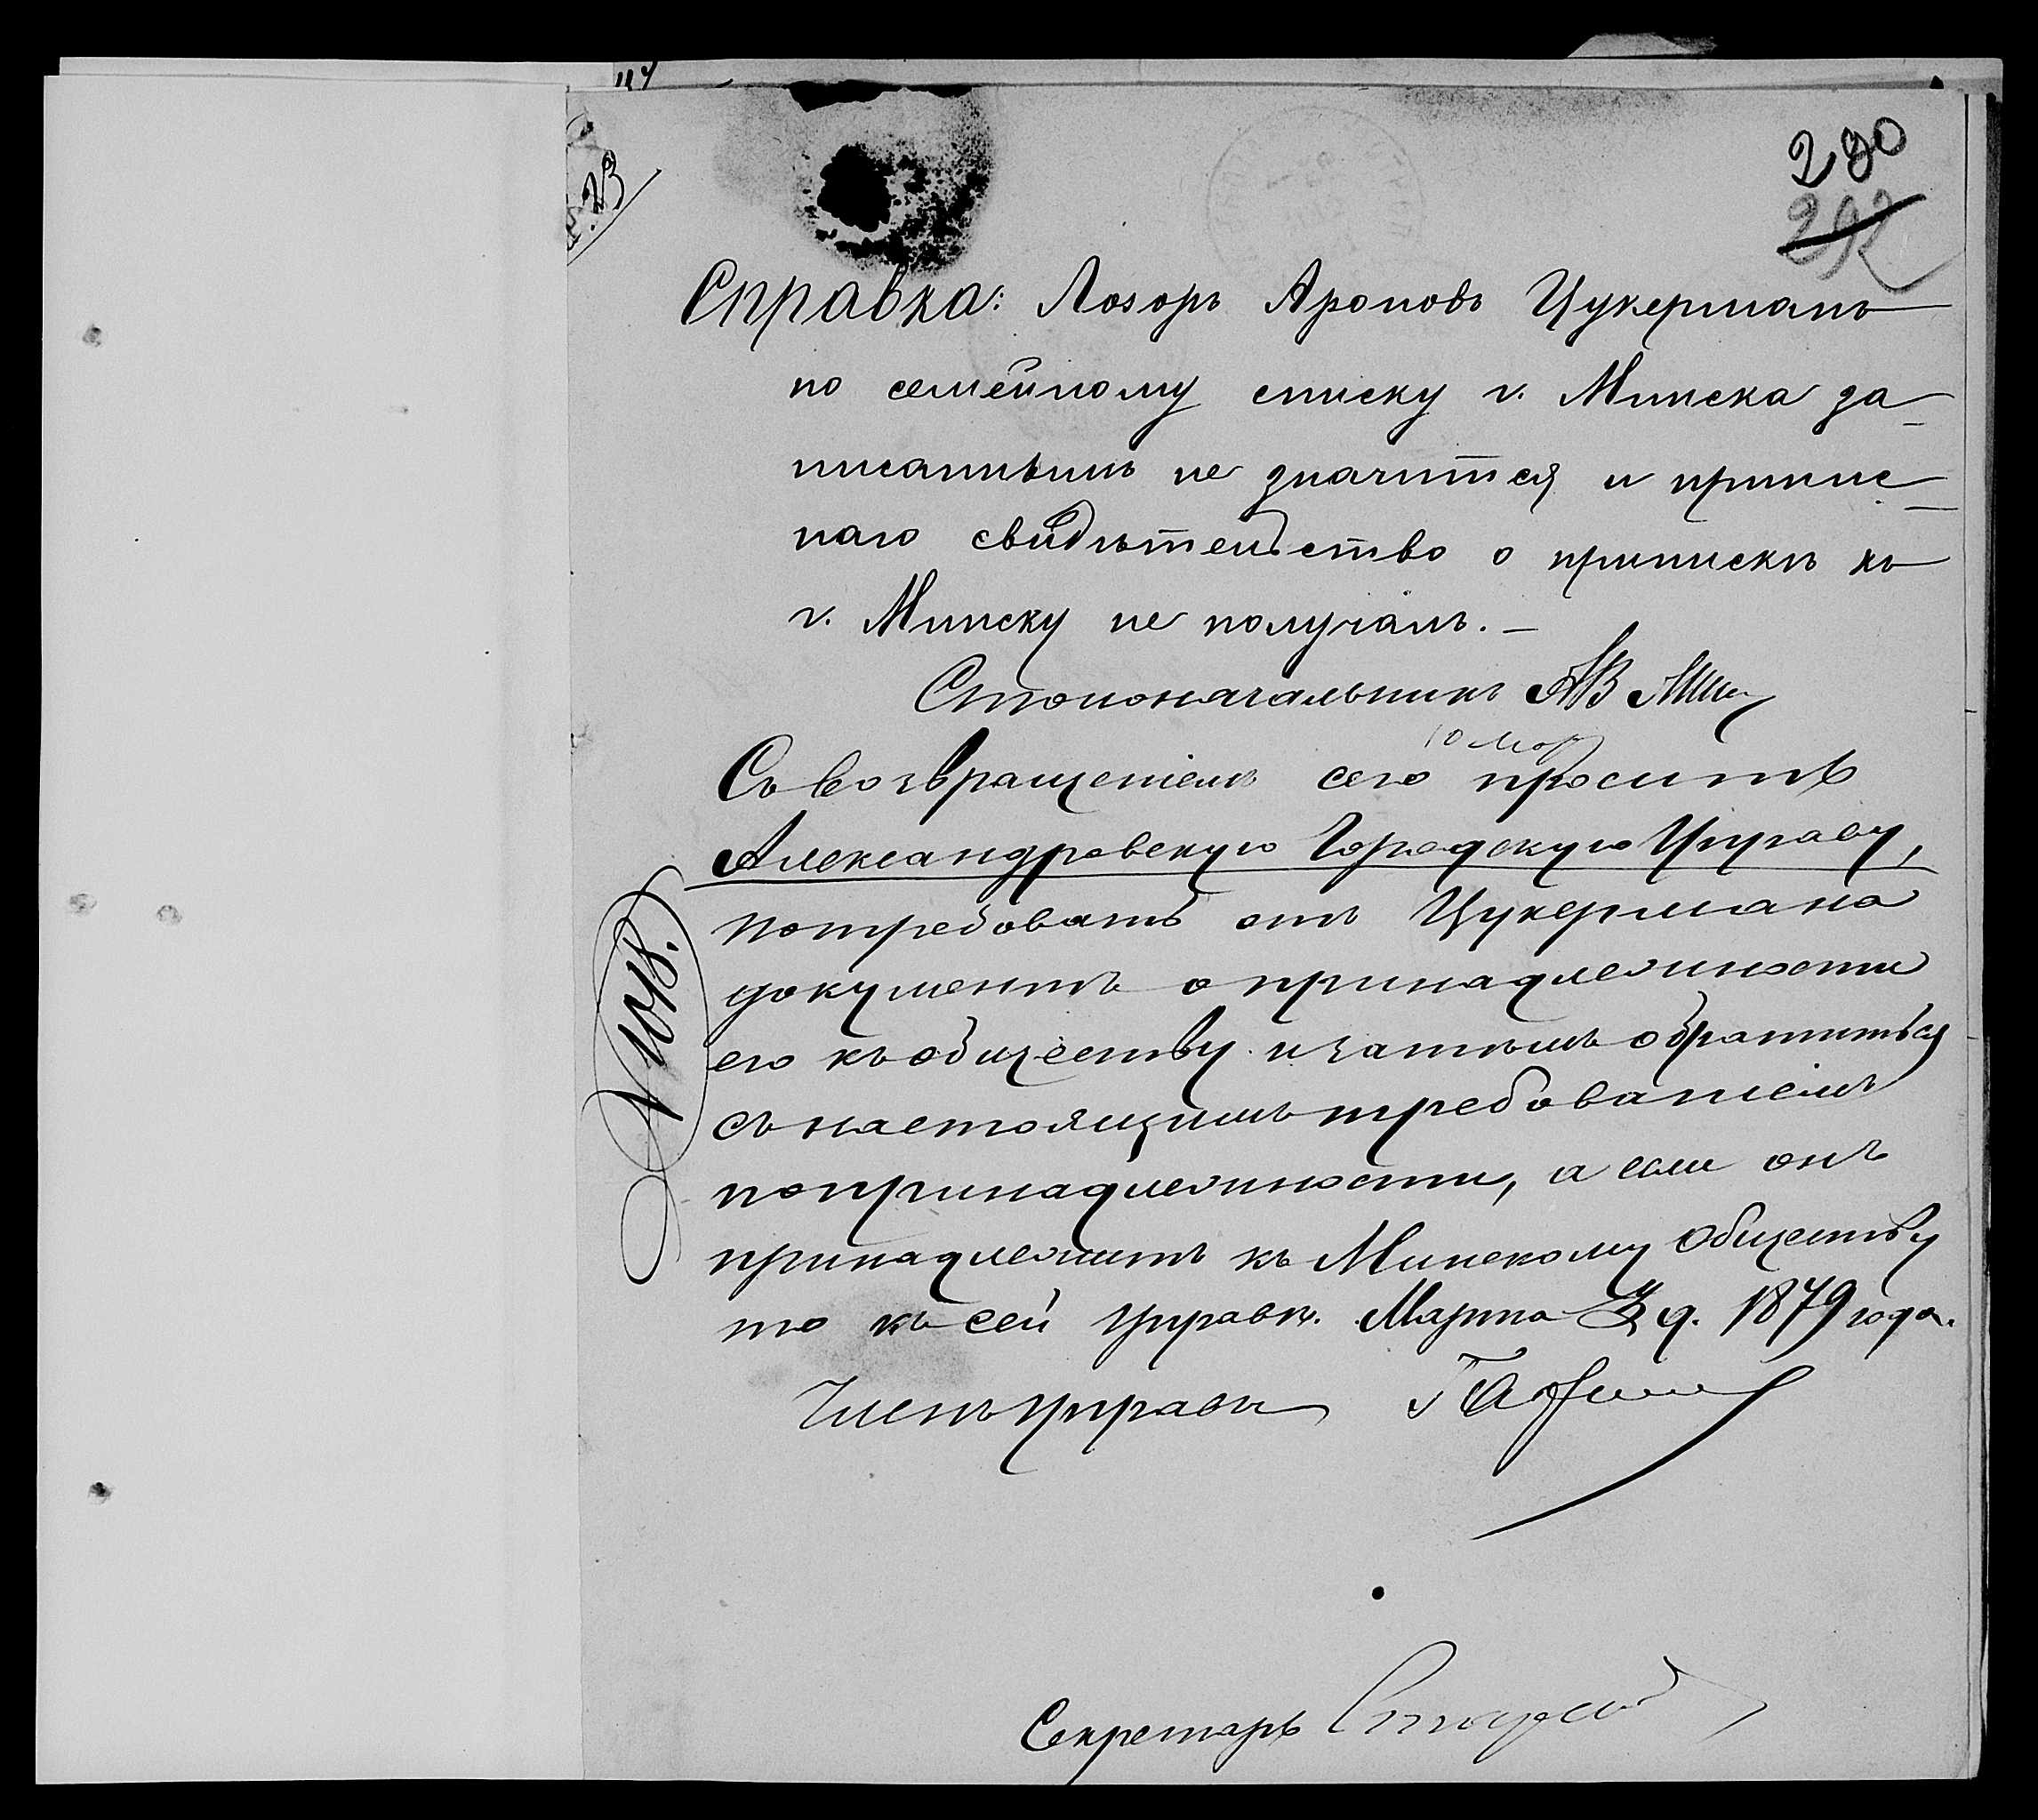 280
292
Справка: Лозоръ Ароновъ Цукерманъ
по семейному списку г. Минска за-
писаннымъ не значится и припис-
наго свидѣтельство о припискѣ къ
г. Минску не получалъ. –
Столоначальникъ
Съ возвращеніемъ сего проситъ
Александровскую Городскую Управу,
потребовать отъ Цукермана
документъ о принадлежности
его къ обществу и затѣмъ обратиться
съ настоящимъ требованіемъ
по принадлежности, а если онъ
принадлежитъ къ Минскому обществу
то въ сей управѣ. Марта 3 д. 1879 года.
Членъ управы
Секретарь
№ 1018.